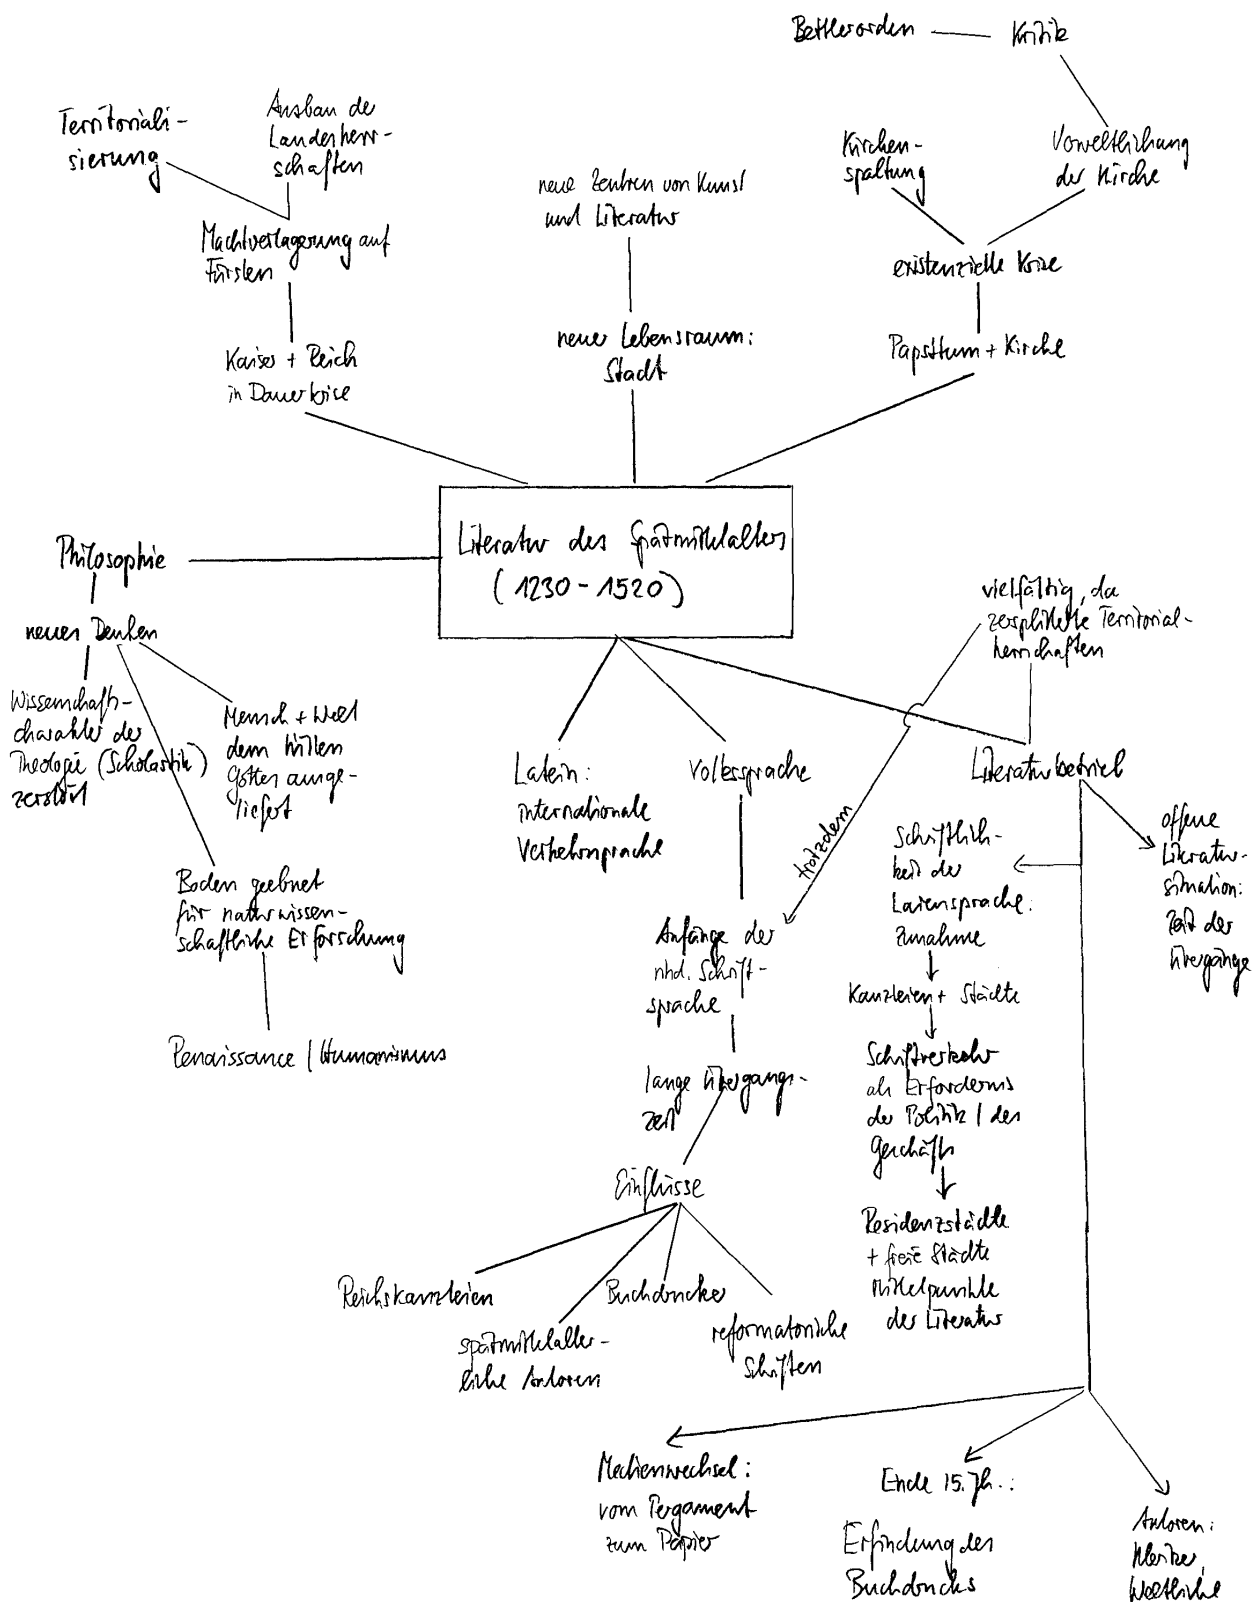 Bettlerorden — Kritik
Territoriali-
sierung
Ausbau der
Landesherr-
schaften
Kirchen-
spaltung
Verweltlichung
der Kirche
neue Zentren von Kunst
und Literatur
Machtverlagerung auf
Fürsten
existenzielle Krise
Kaiser + Reich
in Dauerkrise
neuer Lebensraum:
Stadt
Papsttum + Kirche
Literatur des Spätmittelalters
(1230 - 1520)
Philosophie
neues Denken
Wissenschafts-
charakter der
Theologie (Scholastik)
zerstört
Mensch + Welt
dem Willen
Gottes ausge-
liefert
Boden geebnet
für naturwissen-
schaftliche Erforschung
Renaissance / Humanismus
Latein:
internationale
Verkehrssprache
Volkssprache
vielfältig, da
zersplitterte Territorial-
herrschaften
Literaturbetrieb
trotzdem
Anfänge der
nhd. Schrift-
sprache
lange Übergangs-
zeit
Einflüsse
Reichskanzleien
spätmittelalter-
liche Autoren
Buchdrucker
reformatorische
Schriften
Schriftlich-
keit der
Laiensprache:
Zunahme
Kanzleien + Städte
Schriftverkehr
als Erfordernis
der Politik / des
Geschäfts
Residenzstädte
+ freie Städte
Mittelpunkte
der Literatur
offene
Literatur-
situation:
Zeit der
Übergänge
Medienwechsel:
vom Pergament
zum Papier
Ende 15. Jh.:
Erfindung des
Buchdrucks
Autoren:
Kleriker,
Weltliche